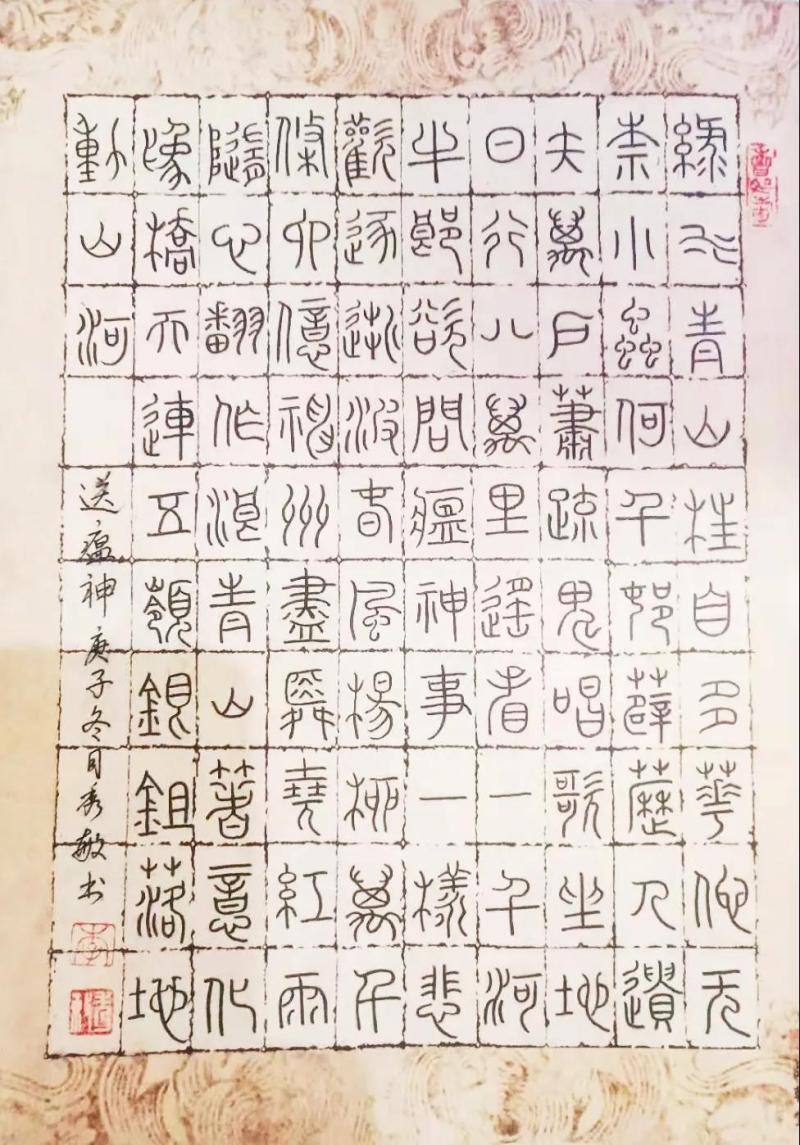 綠水青山枉自多華佗无
柰小蟲何千邨薜藶人遺
矢萬戶蕭疏鬼唱歌坐地
日行八萬里遥看一千河
牛郎欲問瘟神事一樣悲
歡逐逝波春風楊柳萬千
條六億神州盡舜堯紅雨
隨心翻作浪青山著意化
為橋天連五嶺銀鉏落地
動山河
送瘟神 庚子冬月秀敏书